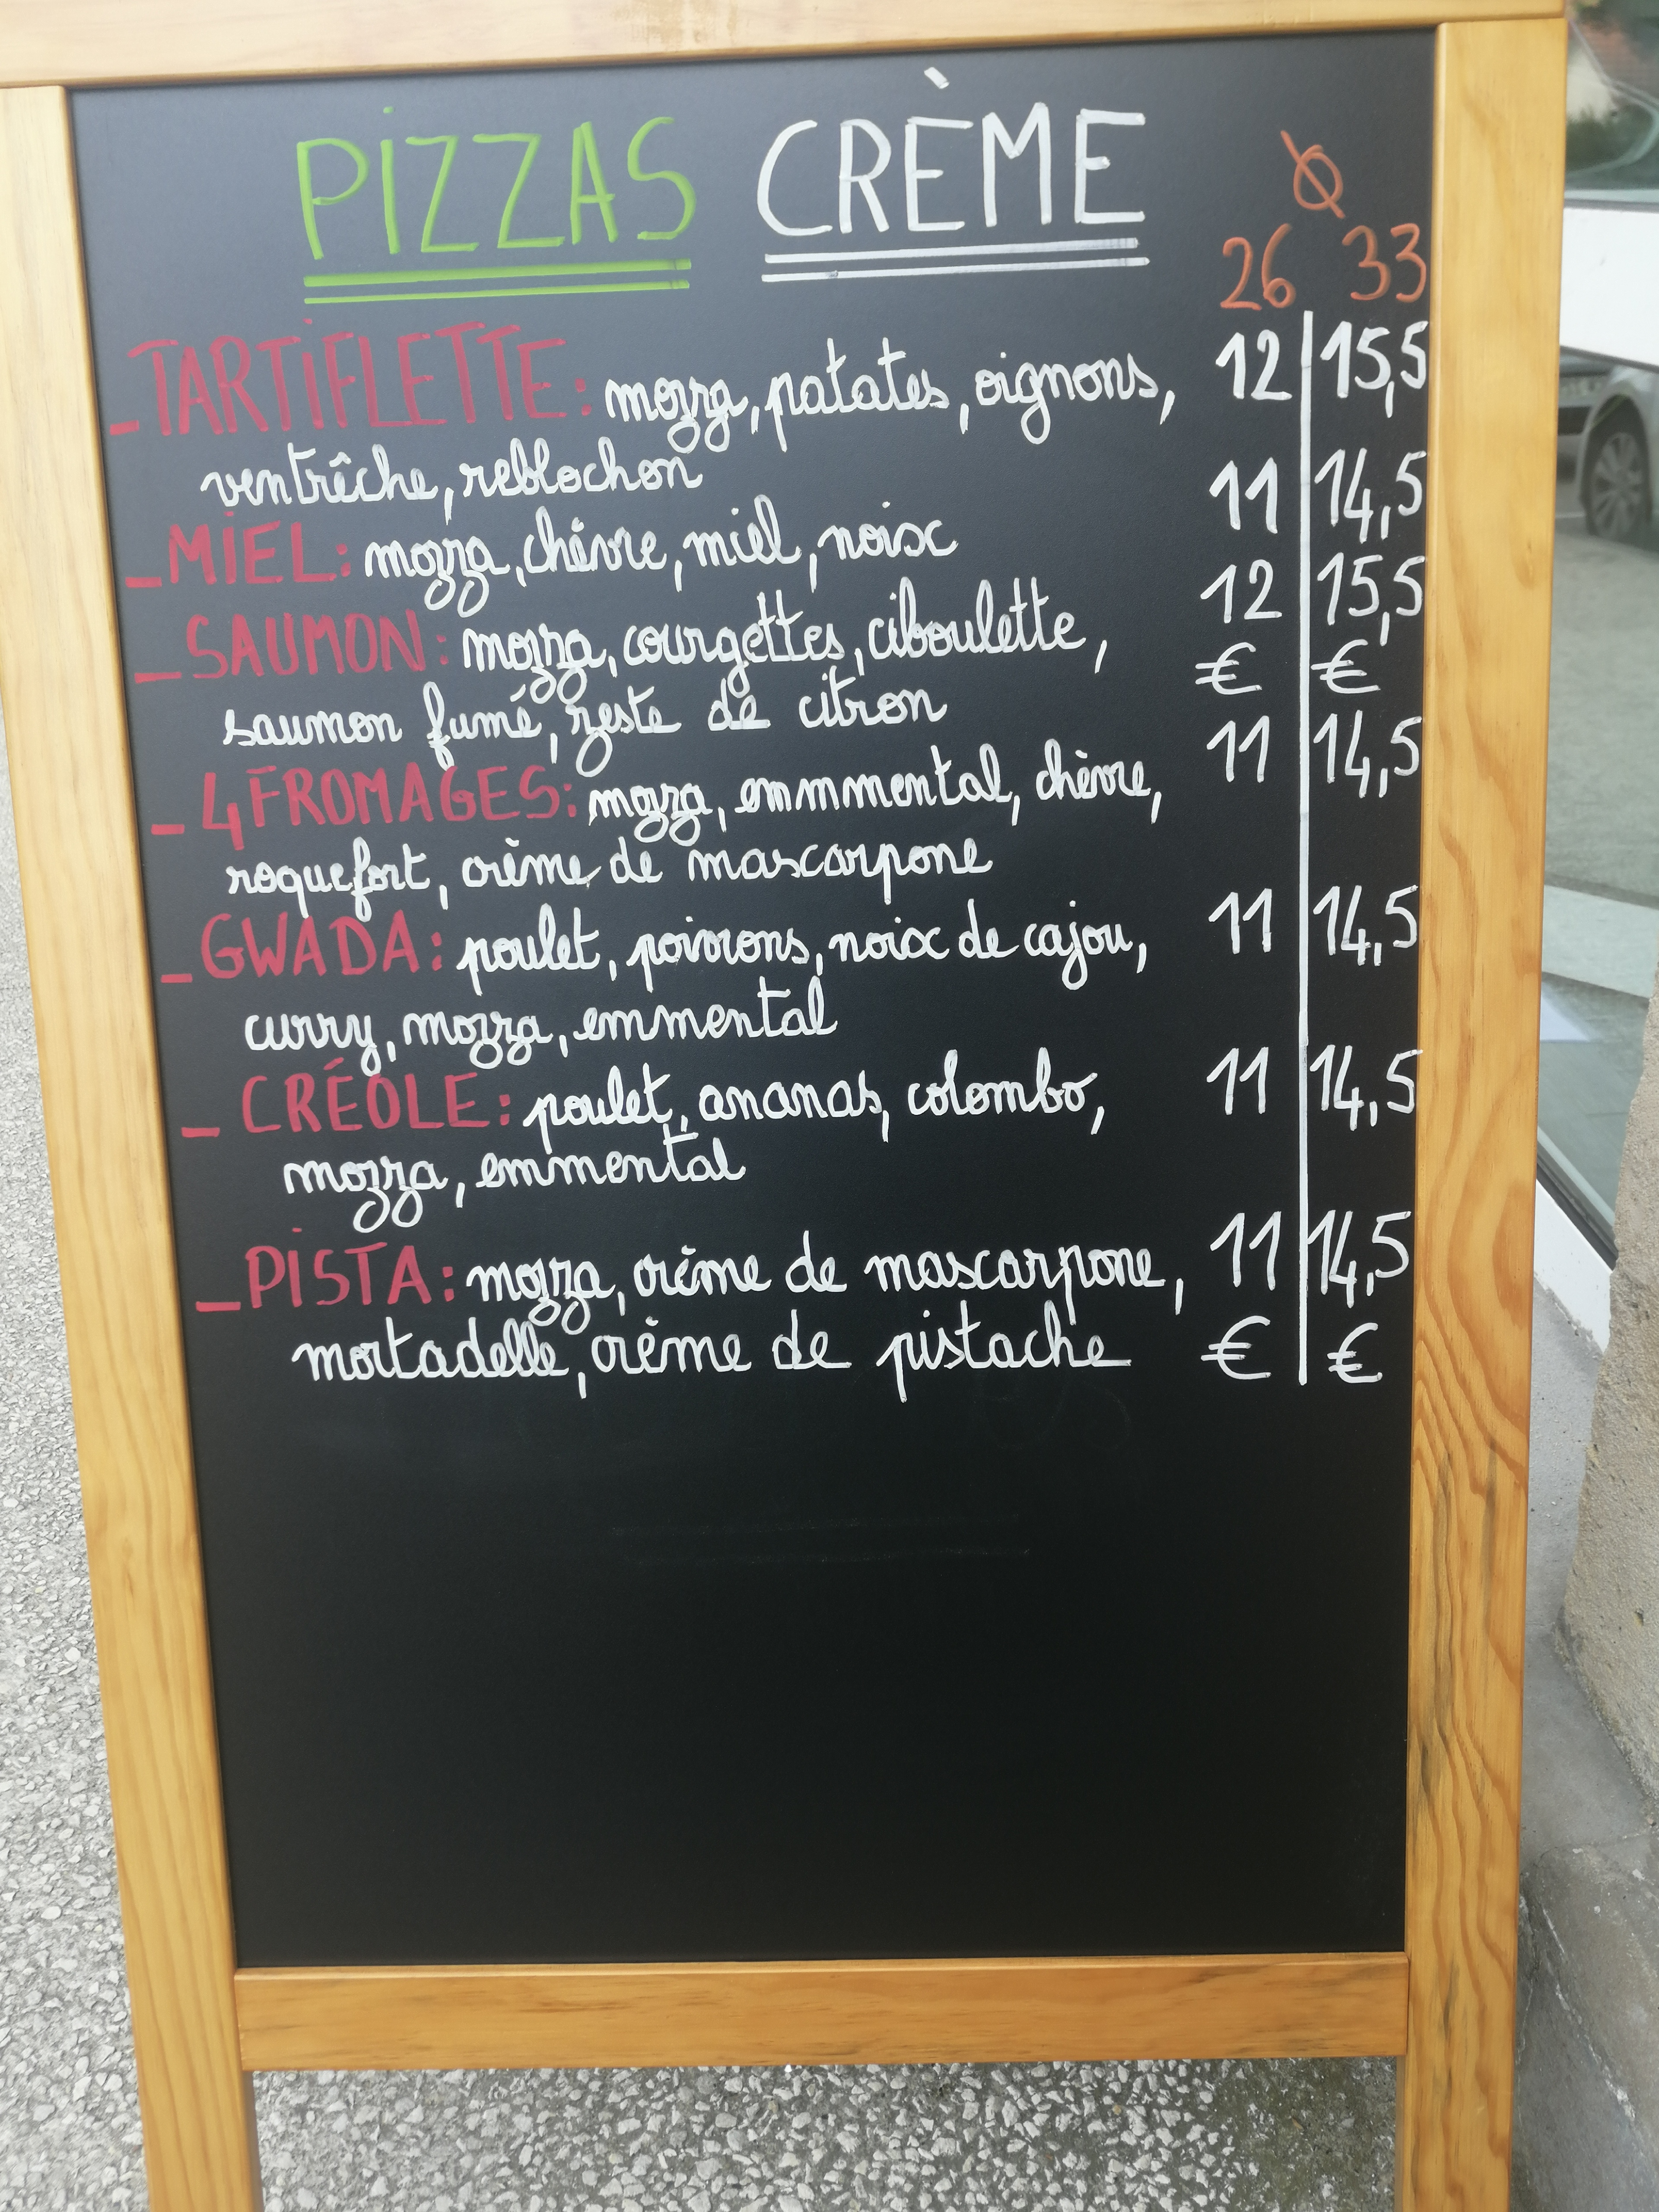 PIZZAS CRÈME Ø
26 33
_TARTIFLETTE: mozza, patates, oignons, 12 | 15,5
ventrêche, reblochon
_MIEL: mozza, chèvre, miel, noix 11 | 14,5
_SAUMON: mozza, courgettes, ciboulette, 12 | 15,5
saumon fumé, zeste de citron € | €
_4 FROMAGES: mozza, emmmental, chèvre, 11 | 14,5
roquefort, crème de mascarpone
_GWADA: poulet, poivrons, noix de cajou, 11 | 14,5
curry, mozza, emmental
_CRÉOLE: poulet, ananas, colombo, 11 | 14,5
mozza, emmental
_PISTA: mozza, crème de mascarpone, 11 | 14,5
mortadelle, crème de pistache € | €